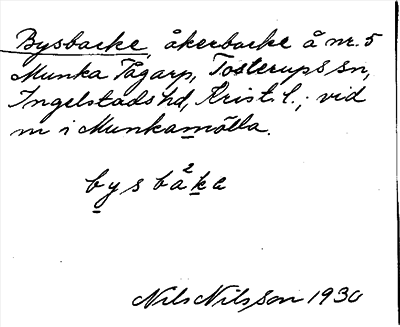 Bysbacke, åkerbacke å nr. 5
Munka Tågarp, Tosterups sn,
Ingelstads hd, Krist. l.; vid
m i Munkamölla.
bysba²ka
Nils Nilsson 1930